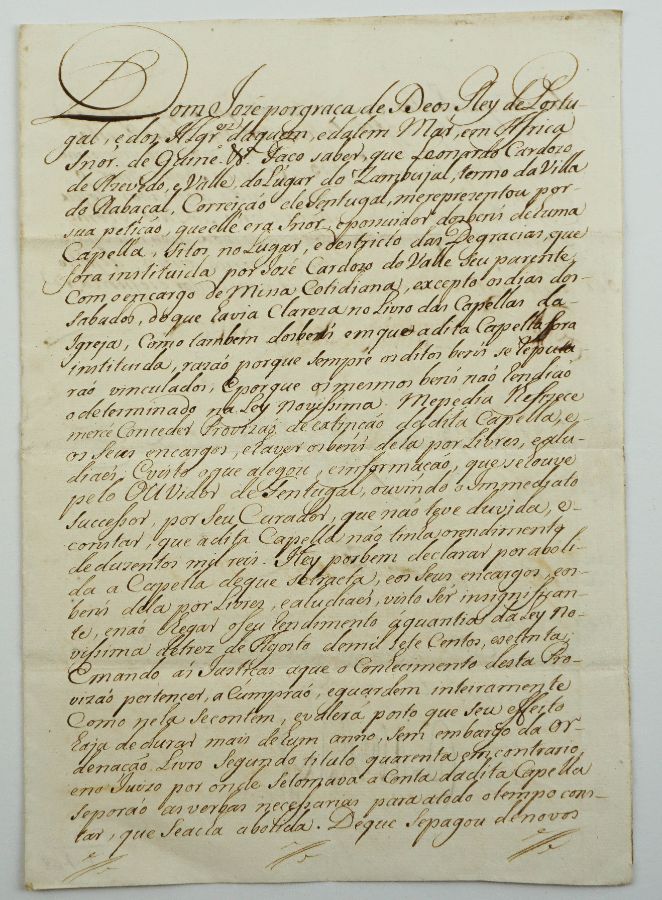 Dom José por graça de Deos Rey de Portu-
gal, e dos Algr.es daquem, e dalem Mar, em Africa
Snor. de Guine. &.a Faço saber, que Leonardo Cardozo
de Azevedo, e Valle, do Lugar do Zambujal, termo da Villa
do Rabaçal, Correição de Tentugal, me reprezentou por
sua petição, que elle era Snor., e ponuidor dos beñs de huma
Capella, Sitos no Lugar, e destricto das Degracias, que
fora instituida por José Cardozo do Valle Seu parente,
Com o encargo de Missa Cotidiana, excepto os dias dos
sabados, de que havia Clareza no Livro das Capellas da
Igreja, Como tambem dos beñs em que a dita Capella fora
instituida, razaõ porque Sempre os ditos beñs se reputa
raõ vinculados; E porque os mesmos beñs naõ rendiaõ
o determinado na Ley Novissima. Me pedia lhe fizece
mercê Conceder Provizaõ de extinçaõ da dita Capella, e
os Seus encargos, e haver os beñs dela por Livres, e alu-
diaes; E visto o que alegou, e informaçaõ, que se houve
pelo OUvidor de Tentugal, ouvindo o Immediato
Successor, por Seu Curador, que naõ teve duvida, e
constar, que a dita Capella naõ tinha o rendimento
de duzentos mil reis. Hey por bem declarar por aboli-
da a Capella de que se tracta, e os Seus encargos, e os
beñs dela por Livres, e aludiaes, visto Ser insignifican-
te, e naõ chegar o seu rendimento a quantia da Ley No-
vissima de trez de Agosto de mil Sete Centos, e setenta;
E mando ás Justiças a que o Conhecimento desta Pro-
vizaõ pertencer, a Cumpraõ, e guardem inteiramente
Como nela se contém, e valerá posto que seu effeito
haja de durar mais de hum anno, Sem embargo da Or-
denaçaõ Livro Segundo titulo quarenta em contrario,
e no Juizo por onde Se tomava a Conta da dita Capella
se poraõ as verbas necessarias para a todo o tempo cons-
tar, que Se acha abolida. De que Se pagou de novos